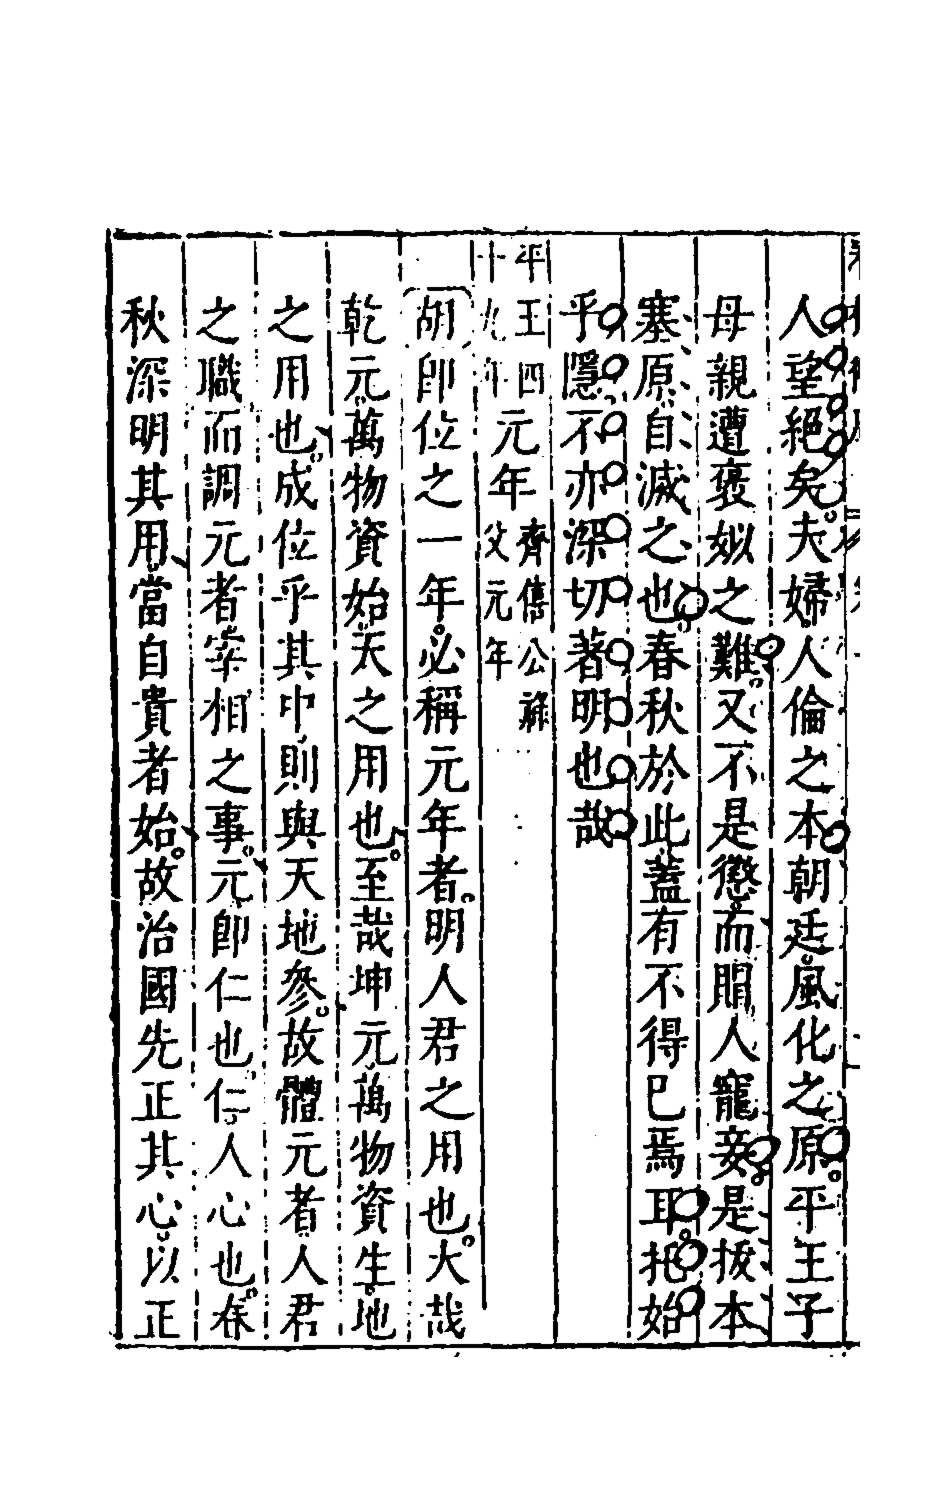 人望絕矣夫婦人倫之本朝廷風化之原平王子
母親遭褒姒之難又不是懲而賵人寵妾是拔本
塞原自滅之也春秋於此蓋有不得已焉耳托始
乎隱不亦深切著明也哉
平王四十九年元年齊僖公祿父元年
胡卽位之一年必稱元年者明人君之用也大哉
乾元萬物資始天之用也至哉坤元萬物資生地
之用也成位乎其中則與天地參故體元者人君
之職而調元者宰相之事元卽仁也仁人心也春
秋深明其用當自貴者始故治國先正其心以正